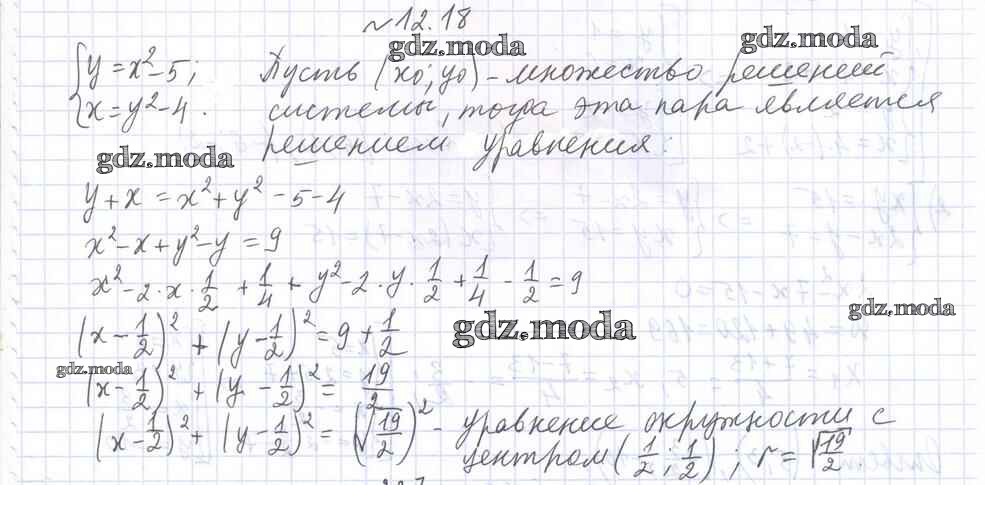 №12.18
gdz.moda
gdz.moda
{ y = x² - 5; Пусть (x₀; y₀) - множество решений
{ x = y² - 4. системы, тогда эта пара является
решением уравнения:
gdz.moda
y + x = x² + y² - 5 - 4
x² - x + y² - y = 9
x² - 2·x·1/2 + 1/4 + y² - 2·y·1/2 + 1/4 - 1/2 = 9
gdz.moda
(x - 1/2)² + (y - 1/2)² = 9 + 1/2
gdz.moda
gdz.moda
(x - 1/2)² + (y - 1/2)² = 19/2
(x - 1/2)² + (y - 1/2)² = (√19/2)² - уравнение окружности с
центром (1/2; 1/2); r = √19/2.